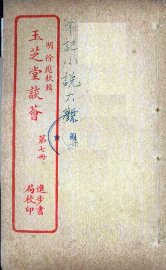 明 徐應秋輯
玉芝堂談薈
第七冊
進步書
局校印
筆記小說大觀